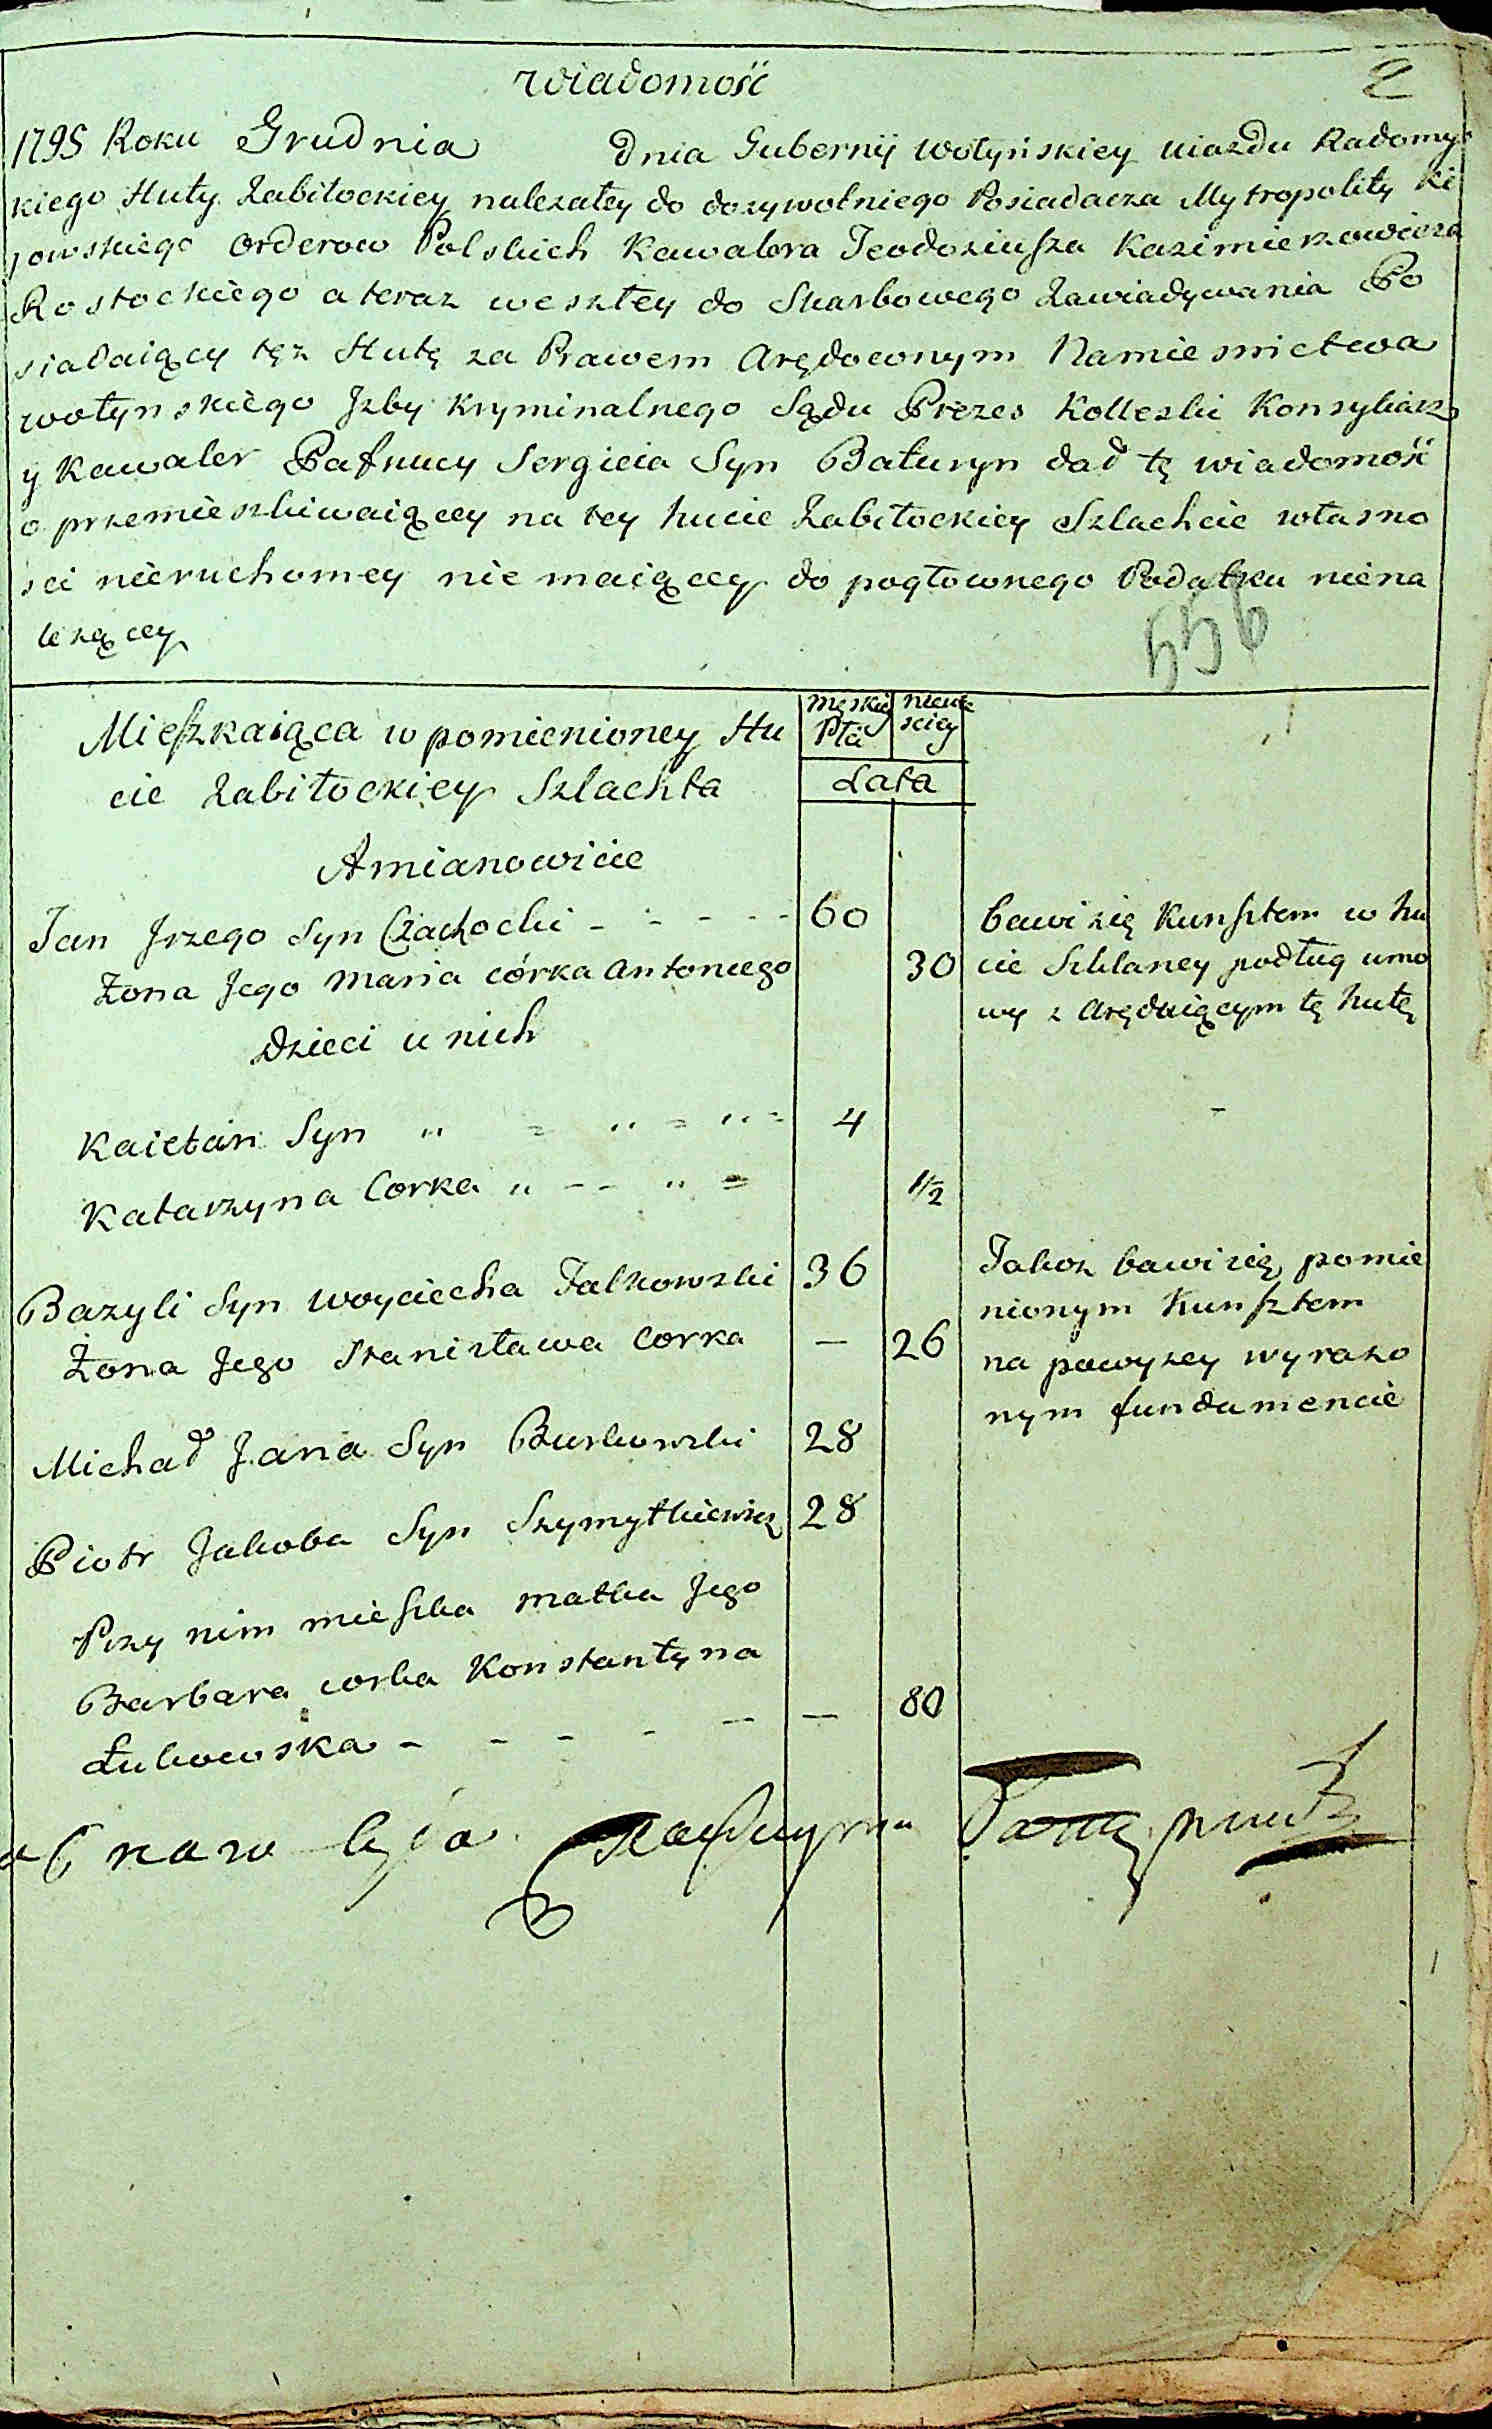 Wiadomość
2
1795 Roku Grudnia dnia Gubernij Wołyńskiey Uiazdu Radomys
kiego Huty Zabiłockiey nalezałey do dozywotniego Posiadacza Mytropolity Ki
jowskiego Orderow Polskich Kawalera Teodoziusza Kazimierzowicza
Rostockiego a teraz weszłey do Skarbowego Zawiadywania Po
siadaiący tęz Hutę za Prawem Arędownym Namiesnictwa
Wołynskiego Jzby Kryminalnego Sądu Prezes Kolleski Konsyliarz
y Kawaler Pafnucy Sergieia Syn Baturyn dał tę wiadomość
o przemieszkiwaiącey na tey hucie Zabiłockiey Szlachcie własno
sci nieruchomey nie maiącey do pogłownego Podatku niena
lezącey
556
Mieszkaiąca w pomienioney Hu
cie Zabiłockiey Szlachta
męskiey Płci
niewie sciey
Lata
Amianowicie
Jan Jrzego Syn Czachocki - - - - - 60
bawi się Kunsztem w hu
Zona Jego Maria córka Antoniego 30
cie Szklaney podług umo
wy z Aręduiącym tę hutę
Dzieci u nich
Kaietan Syn " = " = " = 4
Katarzyna Corka " - - " = 1/2
Bazyli Syn Woyciecha Falkowski 36
Takoz bawi się pomie
nionym Kunsztem
Żona Jego Stanisława Corka — 26
na powyzey wyrazo
nym fundamencie
Michał Jana Syn Burkowski 28
Piotr Jakoba Syn Szymytkiewicz 28
Przy nim mieszka matka Jego
Barbara corka Konstantyna
Łukowska - - - - — — 80